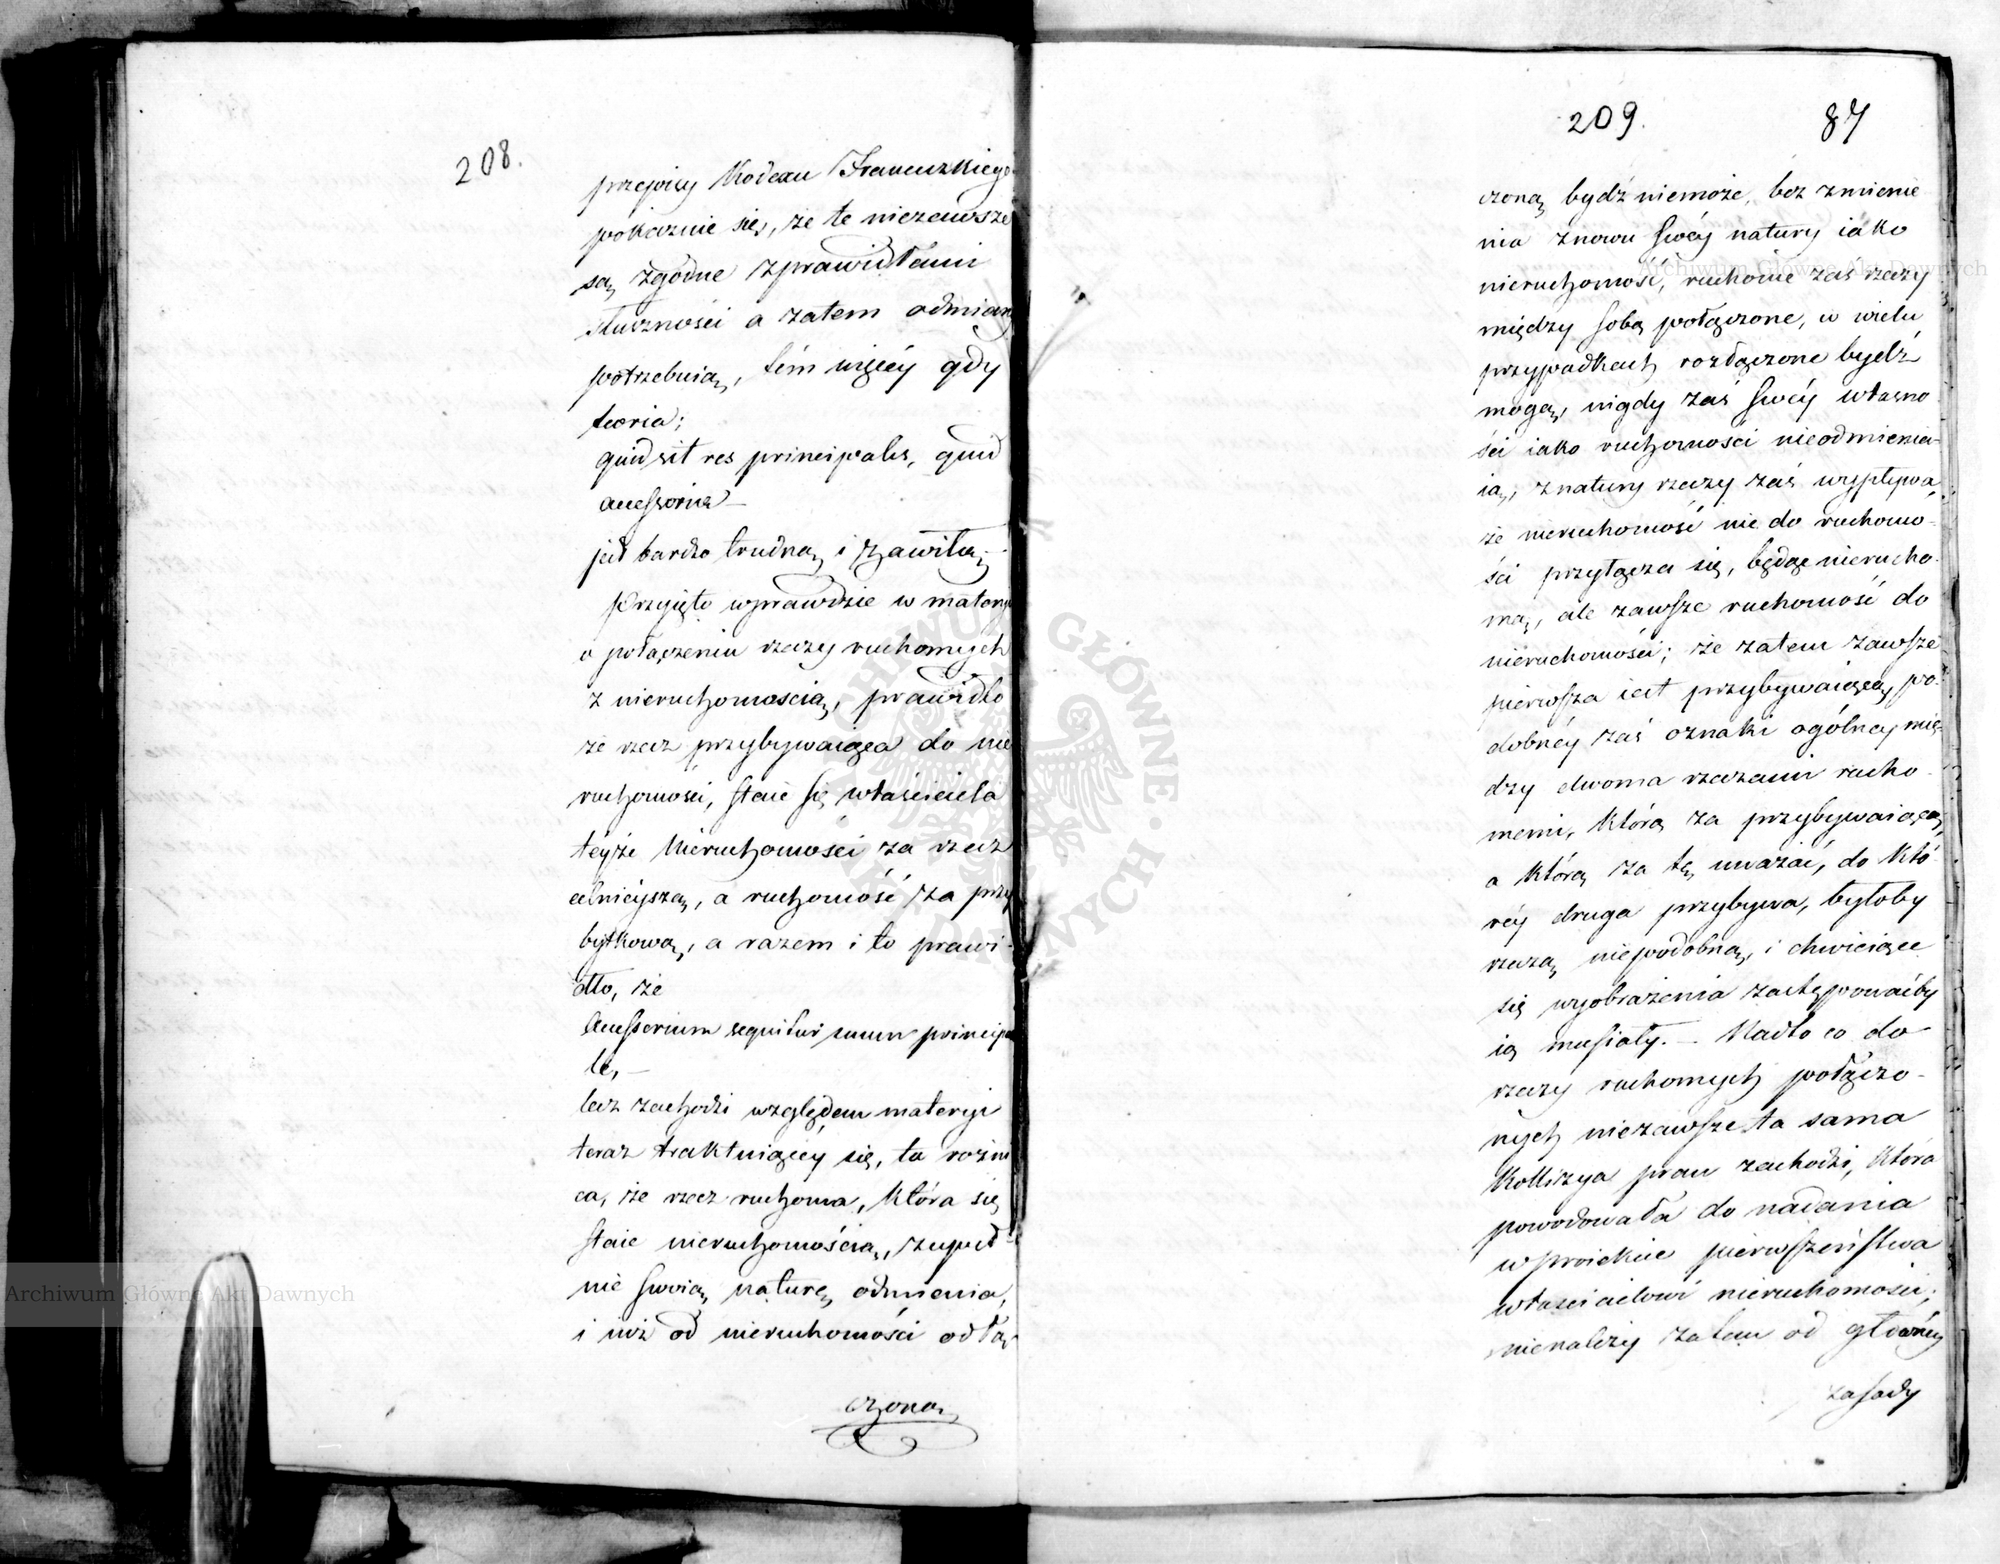 208.
przepisy Kodexu Francuzkiego
pokazuie się, że te niezawsze
są zgodne z prawidłami
słuszności a zatem odmiany
potrzebuią, tém więcéy gdy
teoria;
quid sit res principalis, quid
accessoria —
jest bardzo trudną i zawiłą. —
Przyięto wprawdzie w materyi
o połączeniu rzeczy ruchomych
z nieruchomością, prawidło
że rzecz przybywaiąca do nie
ruchomości, staie się właściciela
téyże Nieruchomości za rzecz
celnieyszą, a ruchomość za przy
bytkową, a razem i to prawi-
dło, że
Accessorium sequitur suum principa
le, —
lecz zachodzi względem materyi
teraz traktuiącéy się, ta rożni
ca, że rzecz ruchoma, która się
staie nieruchomością, zupeł
nie swoią naturę odmienia,
i iuż od nieruchomości odłą-
czoną
209. 87
czoną bydź niemoże, bez zmienie
nia znowu swéy natury iako
nieruchomość, ruchome zaś rzeczy
między sobą połączone, w wielu
przypadkach rozłączone bydź
mogą, nigdy zaś swéy własno
ści iako ruchomości nieodmienia-
ią, z natury rzeczy zaś wypływa
że nieruchomość nie do ruchomo-
ści przyłącza się, będąc nierucho-
mą, ale zawsze ruchomość do
nieruchomości; że zatem zawsze
pierwsza iest przybywaiącą, po-
dobnéy zaś oznaki ogólney mię-
dzy dwoma rzeczami rucho-
memi, którą za przybywaiącą,
a którą za tę uważać, do któ-
réy druga przybywa, byłoby
rzeczą niepodobną, i chwieiące
się wyobrażenia zastępowaćby
ią musiały. — Nadto co do
rzeczy ruchomych połączo-
nych niezawsze ta sama
Kollizya praw zachodzi, która
powodowała do nadania
w proiekcie pierwszeństwa
właścicielowi nieruchomości;
nienależy zatem od główney
zasady
Archiwum Główne Akt Dawnych
Archiwum Główne Akt Dawnych
ARCHIWUM GŁÓWNE AKT DAWNYCH